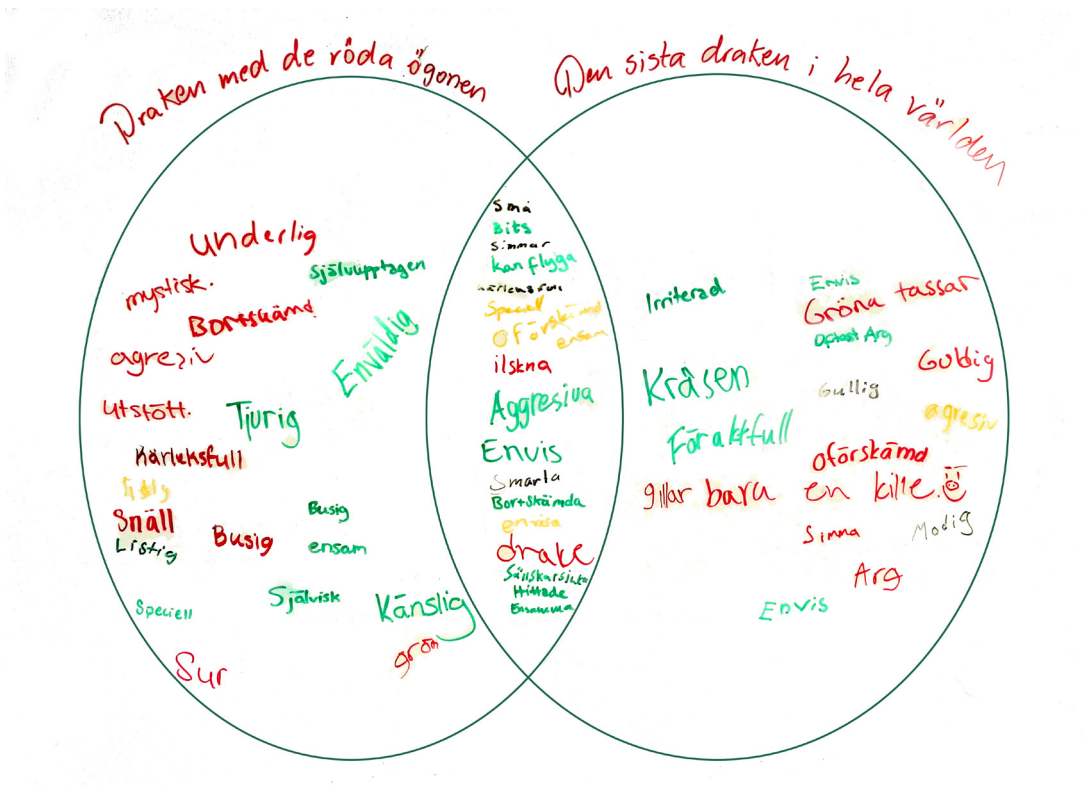 Draken med de röda ögonen
Den sista draken i hela världen
Underlig
Självupptagen
mystisk.
Bortskämd
Enväldig
agresiv
utstött.
Tjurig
Kärleksfull
Snäll
Listig
Busig
Busig
ensam
Självisk
Speciell
Känslig
grön
Sur
Små
Bits
Simmar
kan flyga
Speciell
oförskämd
ensam
ilskna
Aggresiva
Envis
Smarta
Bortskämda
envisa
drake
Hittade
Ensamma
Irriterad
Envis
Gröna tassar
Oftast Arg
Gullig
Kräsen
Gullig
agresiv
Föraktfull
oförskämd
gillar bara en kille.
Simma
Modig
Arg
Envis